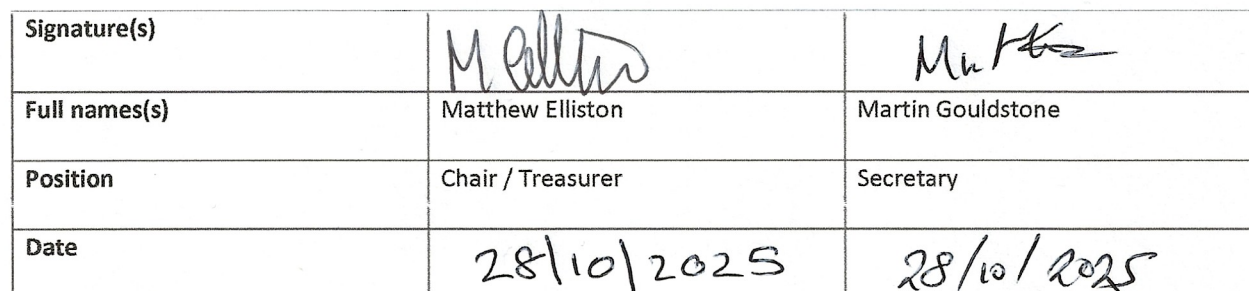 Signature(s)
Full names(s) Matthew Elliston Martin Gouldstone
Position Chair / Treasurer Secretary
Date 28/10/2025 28/10/2025